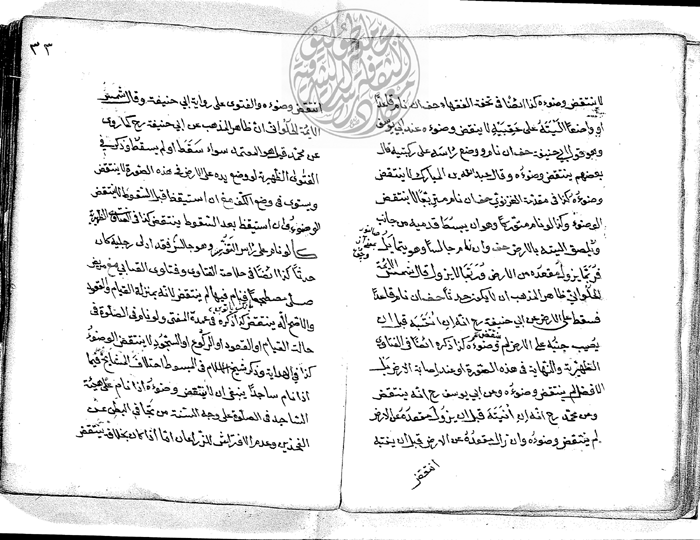 لا ينتقض وضوءه كذا ايضا في تحفة الفقهاء وخف ان نام قاعدا
او واضعا اليتيه على عقبيه لا ينتقض وضوءه عند ابي يوسف
حنيفة خف ان نام ووضع راسه على ركبتيه قال
بعضهم ينتقض وضوءه وقال عبد الله بن المبارك لا ينتقض
وضوءه كذا في مقدمة الغزنوي خف ان نام متربعا لا ينتقض
الوضوء وكذا لو نام متوركا وهو ان يبسط قدميه من جانب
ويلصق اليتيه بالارض خف وان نام جالسا وهو يتمايل
فربما يزول مقعده من الارض وربما لا يزول قال شمس الائمة
الحلواني ظاهر المذهب ان لا يكون حدثا خف ان نام قاعدا
فسقط على الارض عن ابي حنيفة رح انه ان انتبه قبل ان
يصيب جنبه على الارض لم ينتقض وضوءه كذا ذكره ايضا في الفتاوى
الظهيرية والنهاية في هذه الصورة او عند اصابة الارض بلا
فصل لم ينتقض وضوءه وعن ابي يوسف رح انه ينتقض
وعن محمد رح انه ان انتبه قبل ان يزول مقعده على الارض
لم ينتقض وضوءه وان زال مقعده عن الارض قبل ان ينتبه
انتقض
٣٣
انتقض وضوءه والفتوى على رواية ابي حنيفة وقال شمس
الائمة الحلواني ان ظاهر المذهب عن ابي حنيفة رح كما روى
عن محمد قيل هو المعتمد سواء سقط او لم يسقط وذكر في
الفتوى الظهيرية لو وضع يده على الارض في هذه الصورة لا ينتقض
ويستوى في وضع الكف مع ان استيقظ قبل السقوط لا ينتقض
الوضوء وان استيقظ بعد السقوط ينتقض كذا في الفتاوى الظهيرية
كما لو نام على راس التنور وهو جالس قد ادلى رجليه كان
حدثا كذا ايضا في خلاصة الفتاوى وفتاوى القساني مع مريض
صلى مضطجعا فنام فيها لم ينتقض لانه بمنزلة القيام والقعود
والاصح انه ينتقض كذا ذكره في عمدة المفتي ولو نام في الصلوة في
حالة القيام او القعود او الركوع او السجود لا ينتقض الوضوء
كذا في الهداية وذكر شيخ الاسلام في المبسوط اختلاف المشايخ فيما
اذا نام ساجدا ينبغي ان لا ينتقض وضوءه اذا نام على هيئة
الساجد في الصلوة على وجه السنة من تجافي البطن عن
الفخذين وعدم الافتراش للذراعان اما اذا كان بخلافه ينتقض